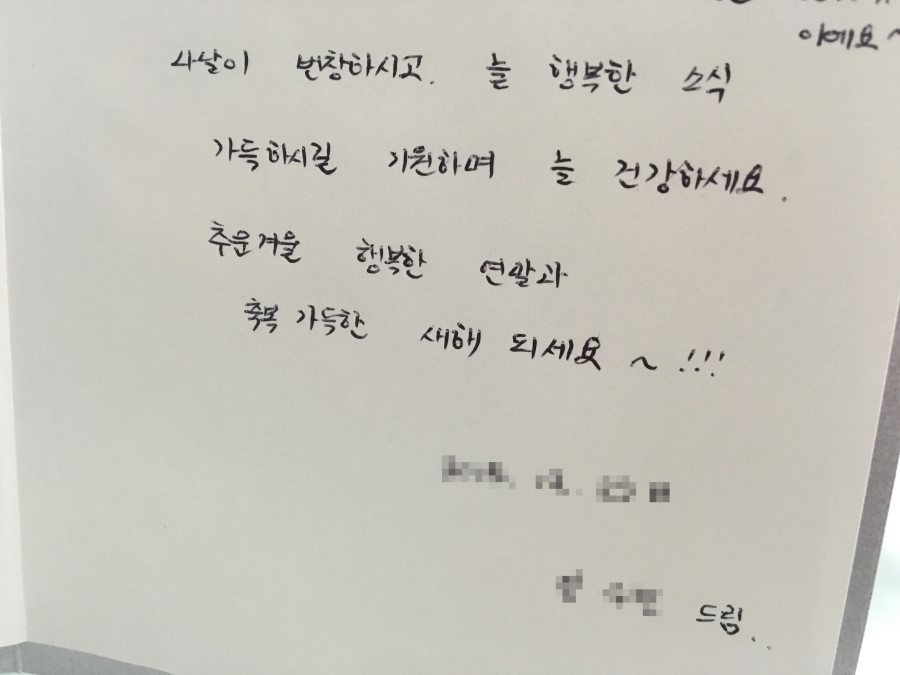 이에요~
나날이 번창하시고. 늘 행복한 소식
가득하시길 기원하며 늘 건강하세요.
추운겨울 행복한 연말과
축복 가득한 새해 되세요~!!!
드림..